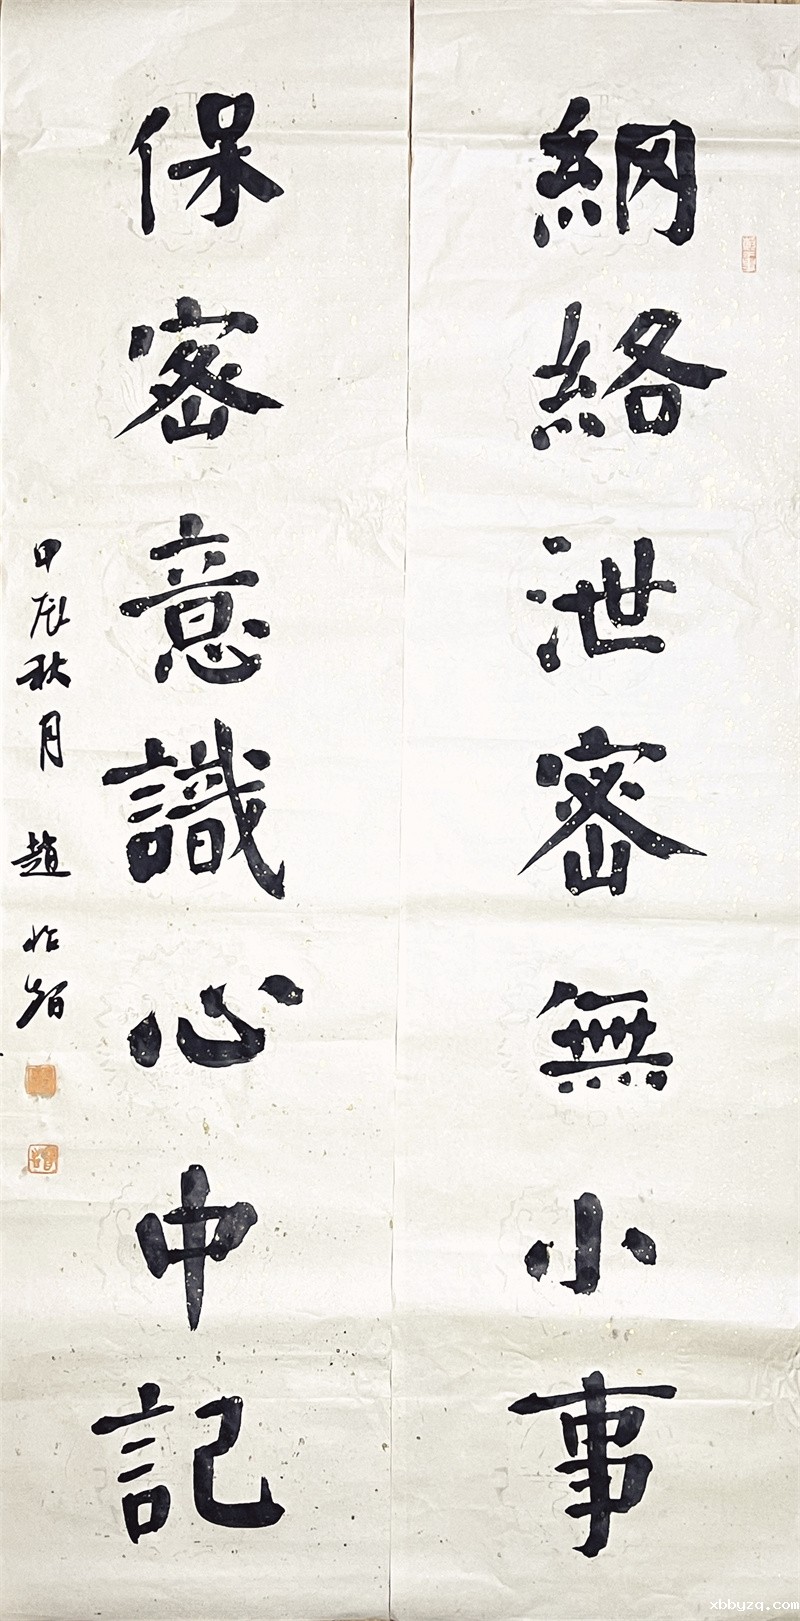 網絡泄密無小事
保密意識心中記
甲辰秋月 趙
xbbyzq.com